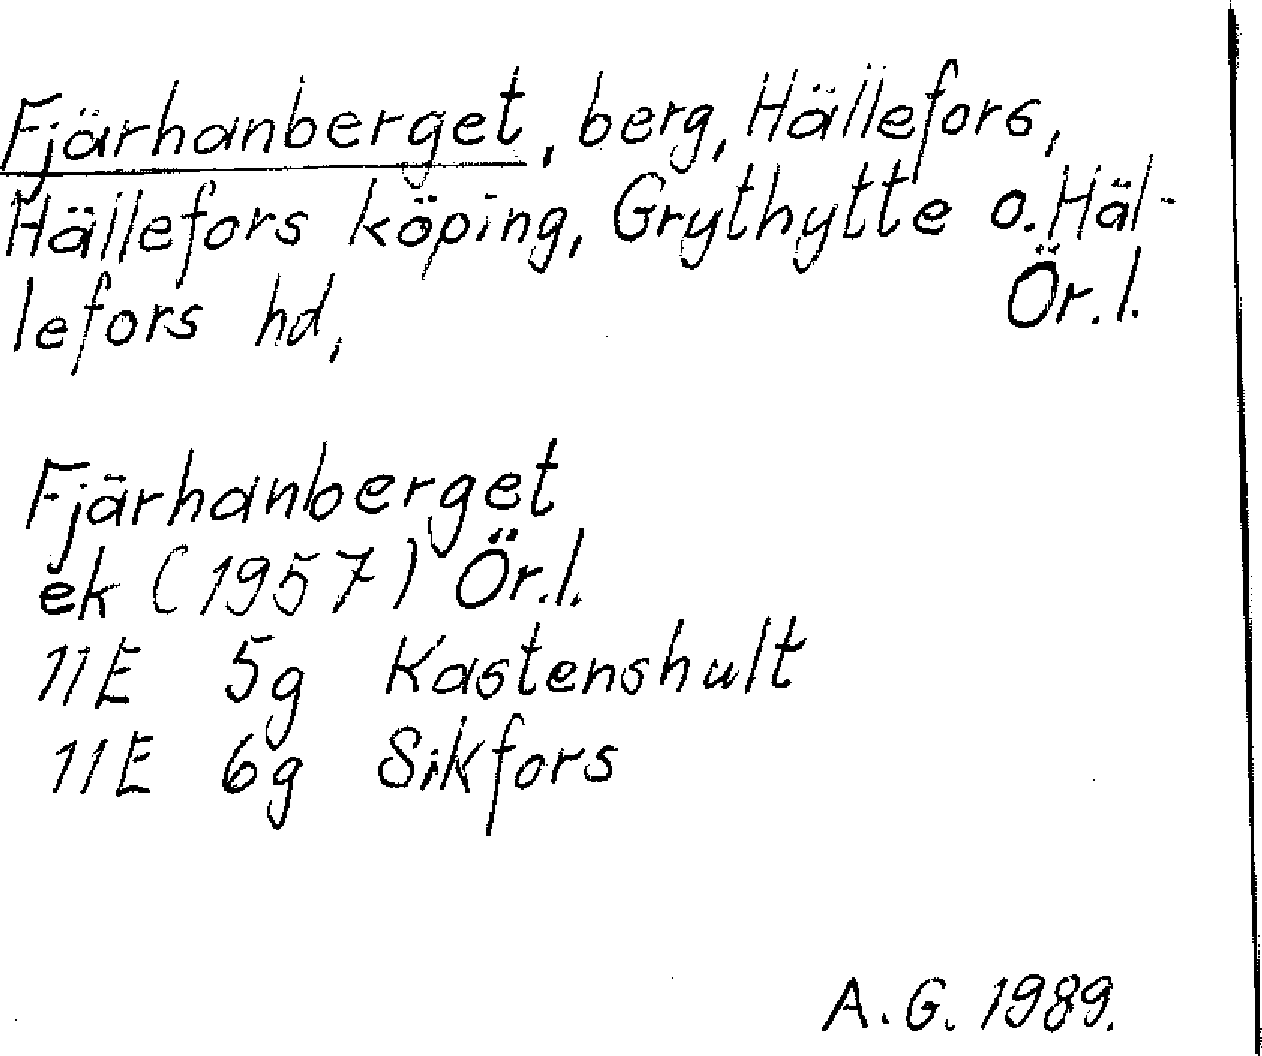 Fjärhanberget, berg, Hällefors,
Hällefors köping, Grythytte o. Häl-
lefors hd, Ör. l.
Fjärhanberget
ek (1957) Ör. l.
11E 5g Kastenshult
11E 6g Sikfors
A. G. 1989.